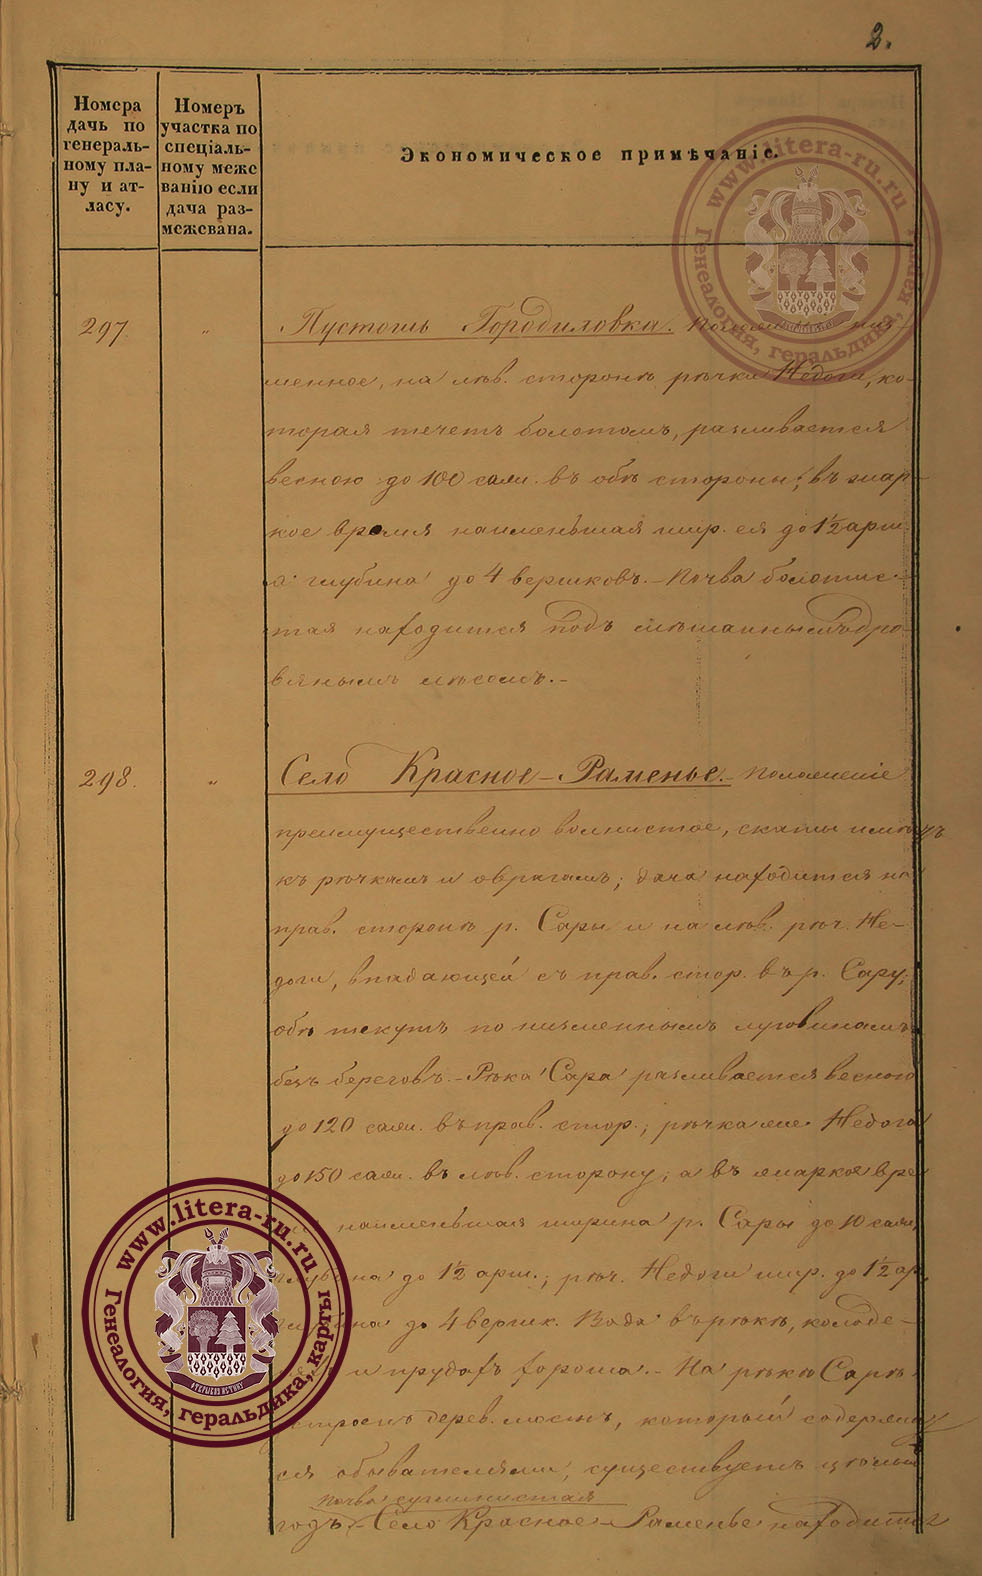 2.
Номера
дачъ по
генераль-
ному пла-
ну и ат-
ласу.
Номеръ
участка по
спеціаль-
ному меже
ванію если
дача раз-
межевана.
Экономическое примѣчаніе.
297. " Пустошь Городиловка. Положеніе низ-
менное, на лѣв. сторонѣ рѣчки Недоги, ко-
торая течетъ болотомъ, разливается
весною до 100 саж. въ обѣ стороны; въ жар-
кое время наименьшая шир. ея до 1½ арш.
а глубина до 4 вершковъ. – Почва болотис-
тая находится подъ смѣшаннымъ дро-
вянымъ лѣсомъ. –
298. " Село Красное – Раменье. – Положеніе
преимущественно волнистое, скаты имѣетъ
къ рѣчкамъ и оврагамъ; дача находится на
прав. сторонѣ р. Сары и на лѣв. рѣч. Не-
доги, впадающей съ прав. стор. въ р. Сару;
обѣ текутъ по низменнымъ луговинамъ
безъ береговъ. – Рѣка Сара разливается весною
до 120 саж. въ прав. стор.; рѣчка же Недога
до 150 саж. въ лѣв. сторону; а въ жаркое вре
наименьшая ширина р. Сары до 10 саж,
глубина до 1½ арш.; рѣч. Недоги шир. до 1½ ар.
глубина до 4 вершк. Вода въ рѣкѣ, колоде-
и прудахъ хороша. – На рѣкѣ Сарѣ
устроенъ дерев. мостъ, который содержит
ся обывателями, существуетъ цѣлый
почва суглинистая
годъ. – Село Красное – Раменье находится
www.litera-ru.ru
Генеалогия, геральдика, карты
www.litera-ru.ru
Генеалогия, геральдика, карты